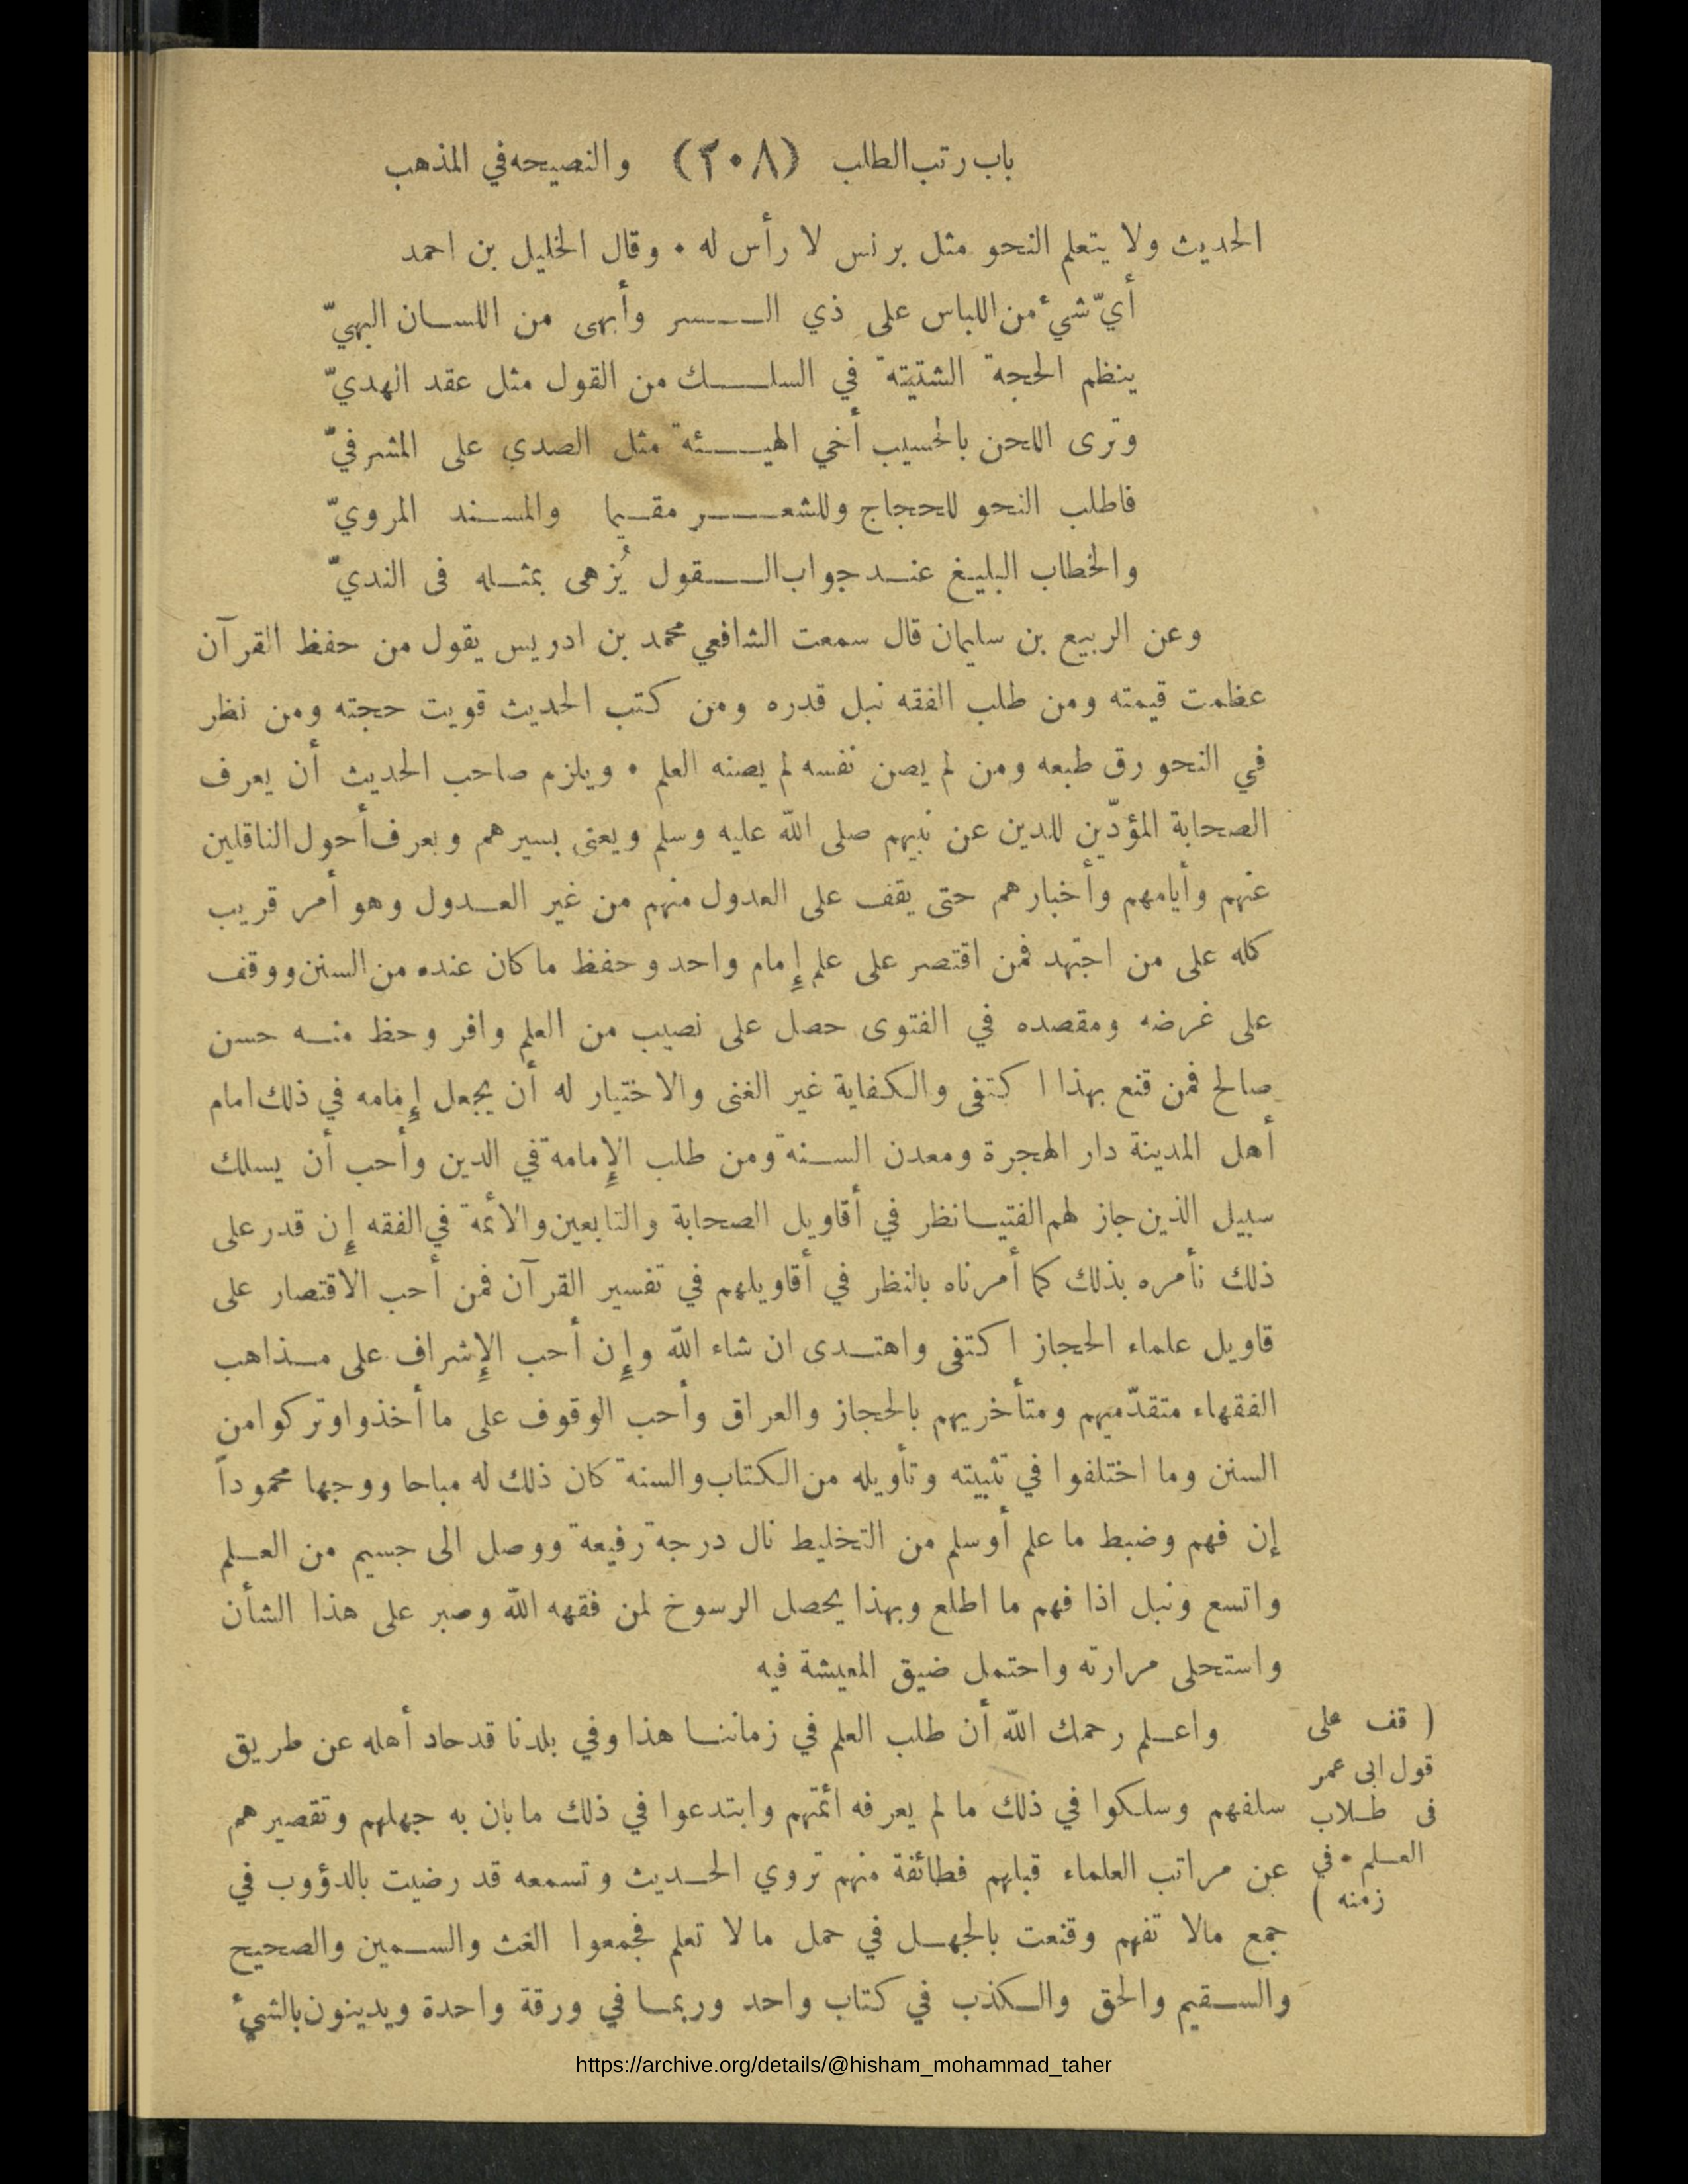 باب رتب الطلب (٢٠٨) والنصيحه في المذهب
الحديث ولا يتعلم النحو مثل برنس لا رأس له • وقال الخليل بن احمد
أيّ شئ من اللباس على ذي الـــسر وأبهى من اللسان البهيّ
ينظم الحجة الشتيتة في السلـــك من القول مثل عقد الهديّ
وترى اللحن بالحسيب أخي الهيـــئة مثل الصدي على المشرفيّ
فاطلب النحو للحجاج وللشعـــر مقيما والمسند المرويّ
والخطاب البليغ عند جواب الـــقول يُزهى بمثله فى النديّ
وعن الربيع بن سليمان قال سمعت الشافعي محمد بن ادريس يقول من حفظ القرآن
عظمت قيمته ومن طلب الفقه نبل قدره ومن كتب الحديث قويت حجته ومن نظر
في النحو رق طبعه ومن لم يصن نفسه لم يصنه العلم • ويلزم صاحب الحديث أن يعرف
الصحابة المؤدّين للدين عن نبيهم صلى الله عليه وسلم ويعنى بسيرهم ويعرف أحول الناقلين
عنهم وأيامهم وأخبارهم حتى يقف على العدول منهم من غير العدول وهو أمر قريب
كله على من اجتهد فمن اقتصر على علم إمام واحد وحفظ ما كان عنده من السنن ووقف
على غرضه ومقصده في الفتوى حصل على نصيب من العلم وافر وحظ منه حسن
صالح فمن قنع بهذا اكتفى والكفاية غير الغنى والاختيار له أن يجعل إمامه في ذلك امام
أهل المدينة دار الهجرة ومعدن السنة ومن طلب الإمامة في الدين وأحب أن يسلك
سبيل الذين جاز لهم الفتيا نظر في أقاويل الصحابة والتابعين والائمة في الفقه إن قدر على
ذلك نأمره بذلك كما أمرناه بالنظر في أقاويلهم في تفسير القرآن فمن أحب الاقتصار على
قاويل علماء الحجاز اكتفى واهتدى ان شاء الله وإن أحب الإشراف على مذاهب
الفقهاء متقدّميهم ومتأخريهم بالحجاز والعراق وأحب الوقوف على ما أخذوا وتركوا من
السنن وما اختلفوا في تثبيته وتأويله من الكتاب والسنة كان ذلك له مباحا ووجها محموداً
إن فهم وضبط ما علم أوسلم من التخليط نال درجة رفيعة ووصل الى جسيم من العلم
واتسع ونبل اذا فهم ما اطلع وبهذا يحصل الرسوخ لمن فقهه الله وصبر على هذا الشأن
واستحلى مرارته واحتمل ضيق المعيشة فيه
واعلم رحمك الله أن طلب العلم في زماننا هذا وفي بلدنا قد حاد أهله عن طريق
سلفهم وسلكوا في ذلك ما لم يعرفه ائمتهم وابتدعوا في ذلك ما بان به جهلهم وتقصيرهم
عن مراتب العلماء قبلهم فطائفة منهم تروي الحديث وتسمعه قد رضيت بالدؤوب في
جمع مالا تفهم وقنعت بالجهل في حمل مالا تعلم فجمعوا الغث والسمين والصحيح
والسقيم والحق والكذب في كتاب واحد وربما في ورقة واحدة ويدينون بالشئ
( قف على
قول ابى عمر
فى طلاب
العلم • في
زمنه )
https://archive.org/details/@hisham_mohammad_taher